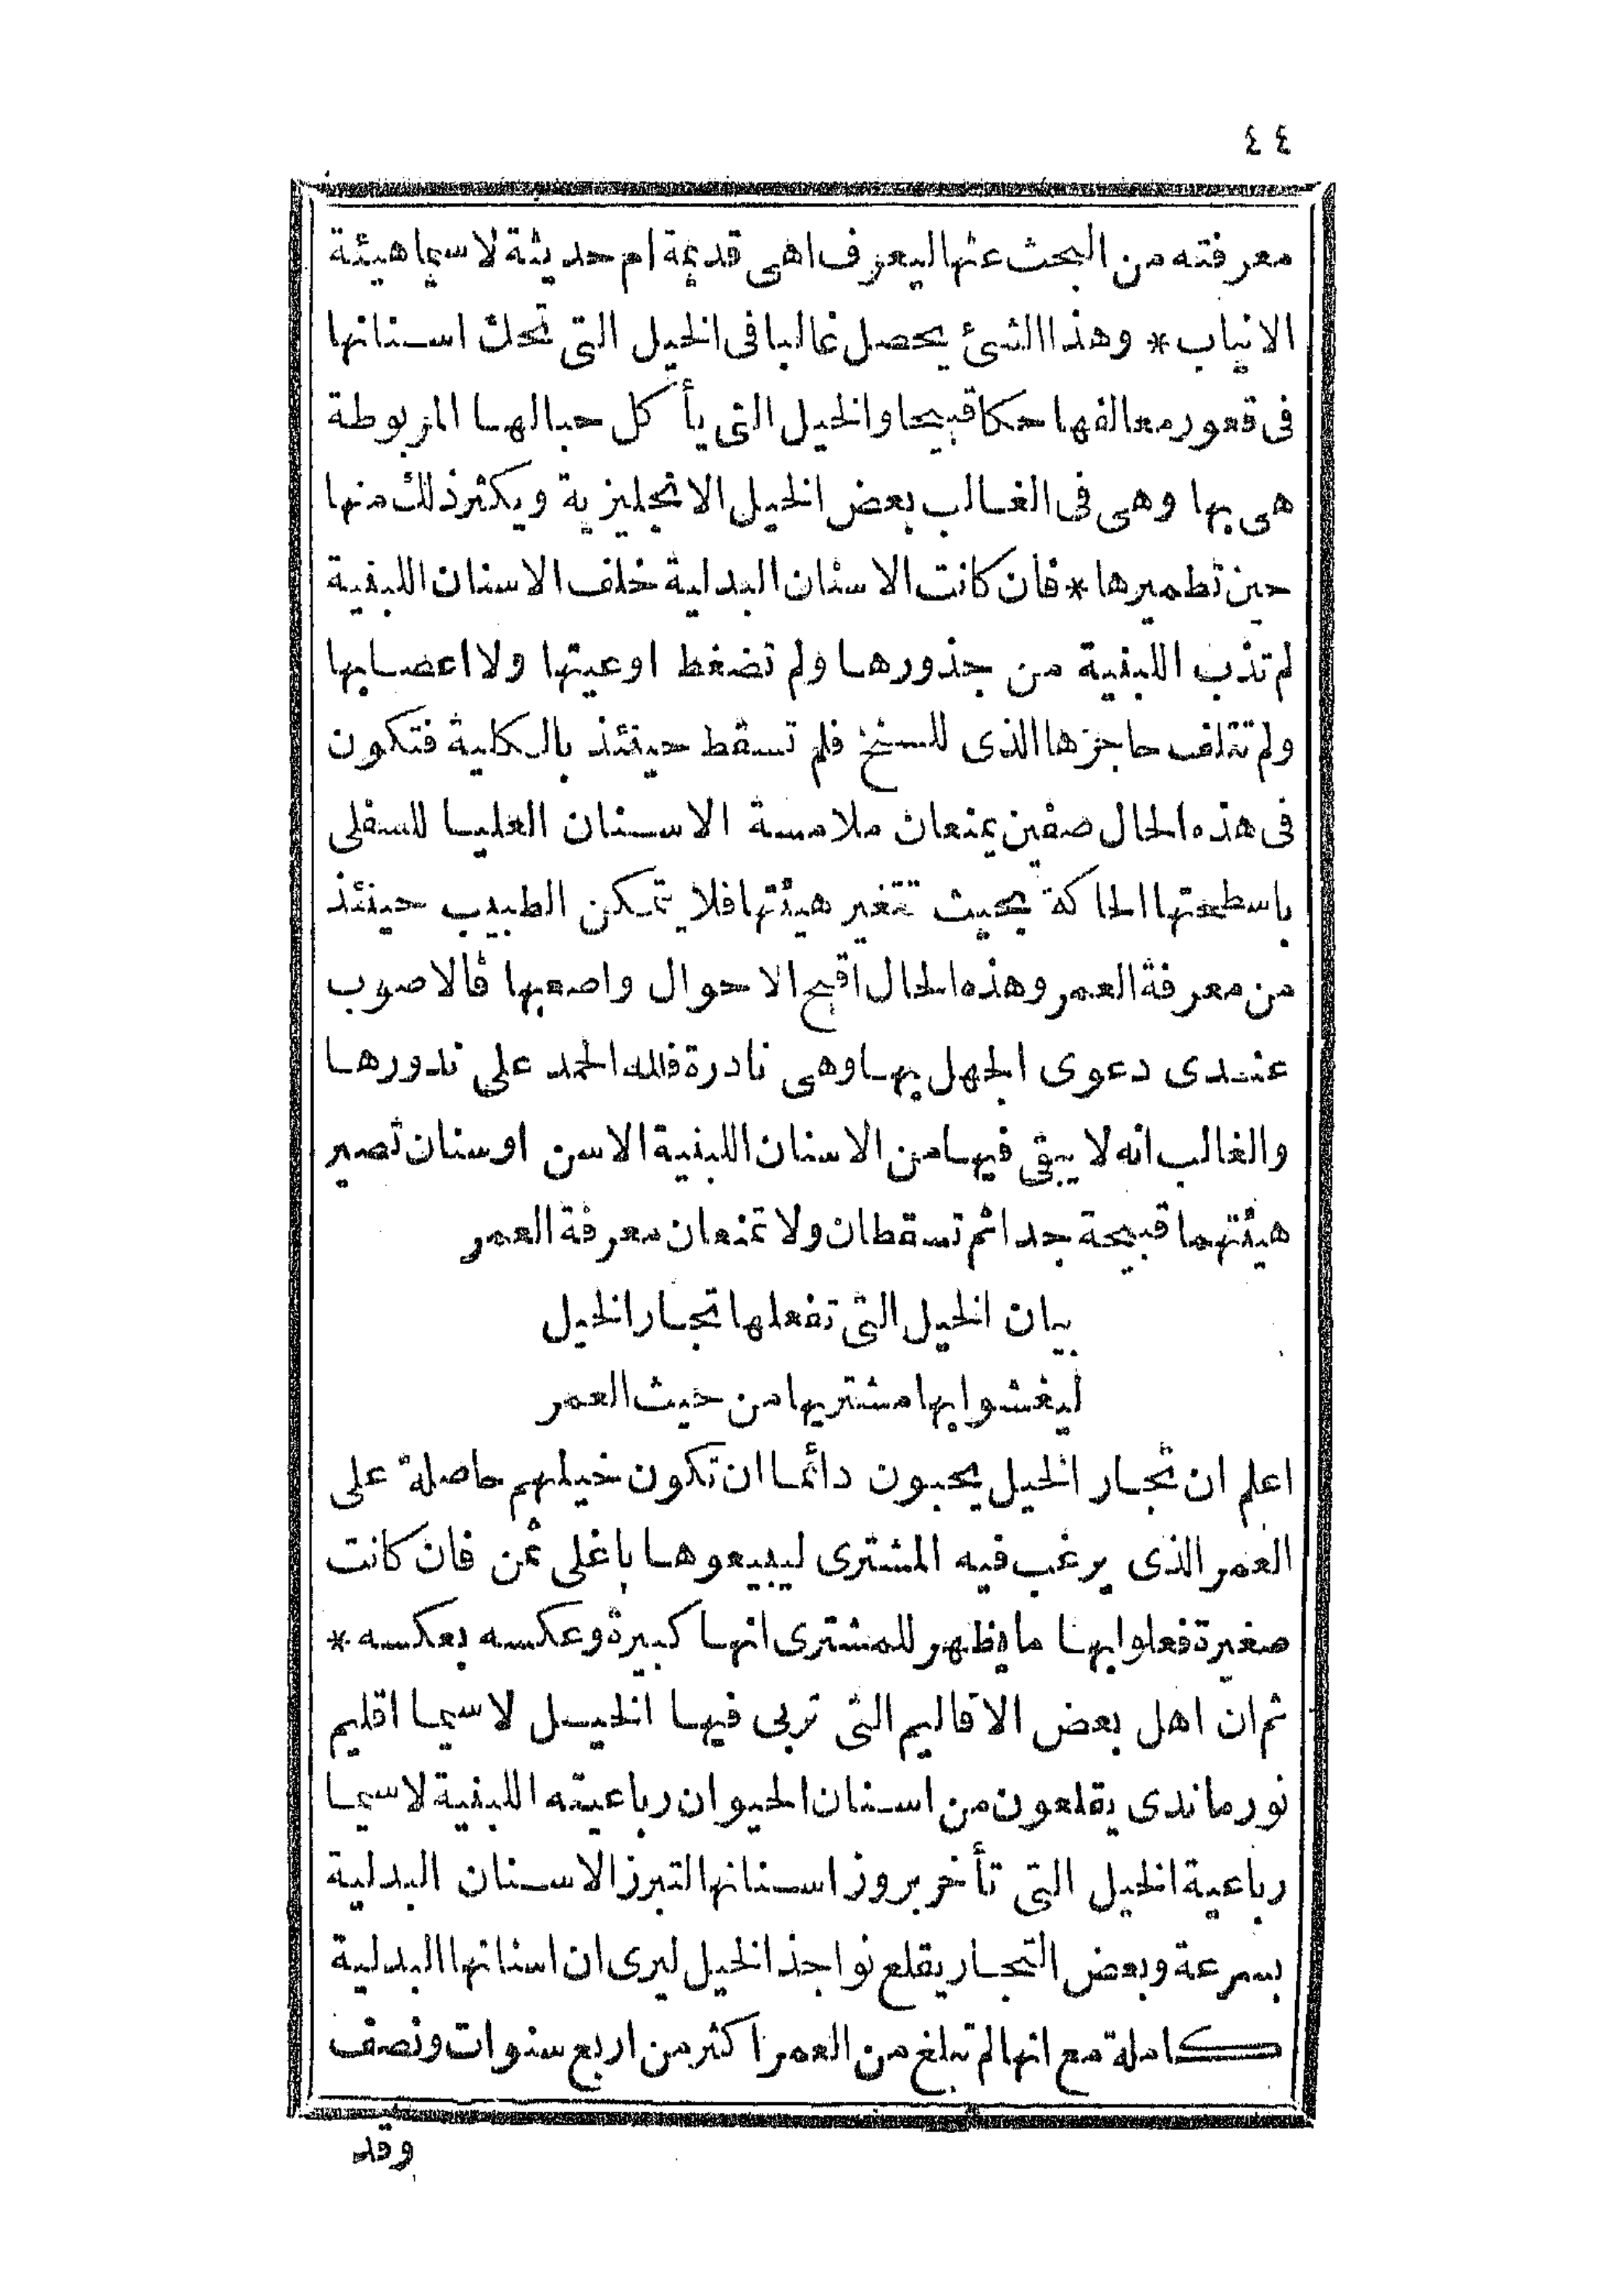 ٤٤
معرفته من البحث عنها ليعرف اهى قديمة ام حديثة لاسيما هيئة
الانياب * وهذا الشئ يحصل غالبا فى الخيل التى تحك اسنانها
فى قعور معالفها حكا قبيحا والخيل التى يأكل حبالها المربوطة
هى بها وهى فى الغالب بعض الخيل الانجليزية ويكثر ذلك منها
حين تطميرها * فان كانت الاسنان البدلية خلف الاسنان اللبنية
لم تذب اللبنية من جذورها ولم تضغط اوعيتها ولا اعصابها
ولم تتلف حاجزها الذى للسنخ فلم تسقط حينئذ بالكلية فتكون
فى هذه الحال صفين يمنعان ملامسة الاسنان العليا للسفلى
باسطحتها الحاكة بحيث تتغير هيئتها فلا يتمكن الطبيب حينئذ
من معرفة العمر وهذه الحال اقبح الاحوال واصعبها فالاصوب
عندى دعوى الجهل بها وهى نادرة فلله الحمد على ندورها
والغالب انه لا يبقى فيها من الاسنان اللبنية الاسن اوسنان تصير
هيئتهما قبيحة جدا ثم تسقطان ولا تمنعان معرفة العمر
بيان الخيل التى تفعلها تجار الخيل
ليغشوا بها مشتريها من حيث العمر
اعلم ان تجار الخيل يحبون دائما ان تكون خيلهم حاصلة على
العمر الذى يرغب فيه المشترى ليبيعوها باغلى ثمن فان كانت
صغيرة فعلوا بها ما يظهر للمشترى انها كبيرة وعكسه بعكسه *
ثم ان اهل بعض الاقاليم التى تربى فيها الخيل لاسيما اقليم
نورماندى يقلعون من اسنان الحيوان رباعيته اللبنية لاسيما
رباعية الخيل التى تأخر بروز اسنانها لتبرز الاسنان البدلية
بسرعة وبعض التجار يقلع نواجذ الخيل ليرى ان اسنانها البدلية
كاملة مع انها لم تبلغ من العمر اكثر من اربع سنوات ونصف
وقد